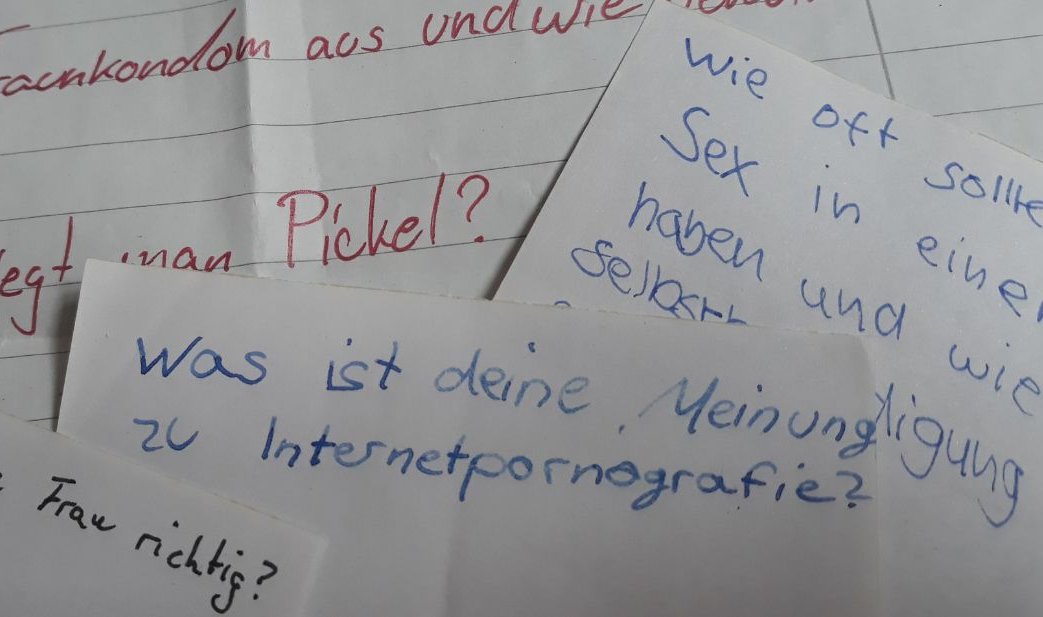 aus und wie
egt man Pickel?
Wie oft sollte
Sex in einer
haben und wie
Selbst
tigung
Was ist deine Meinung
zu Internetpornografie?
Frau richtig?